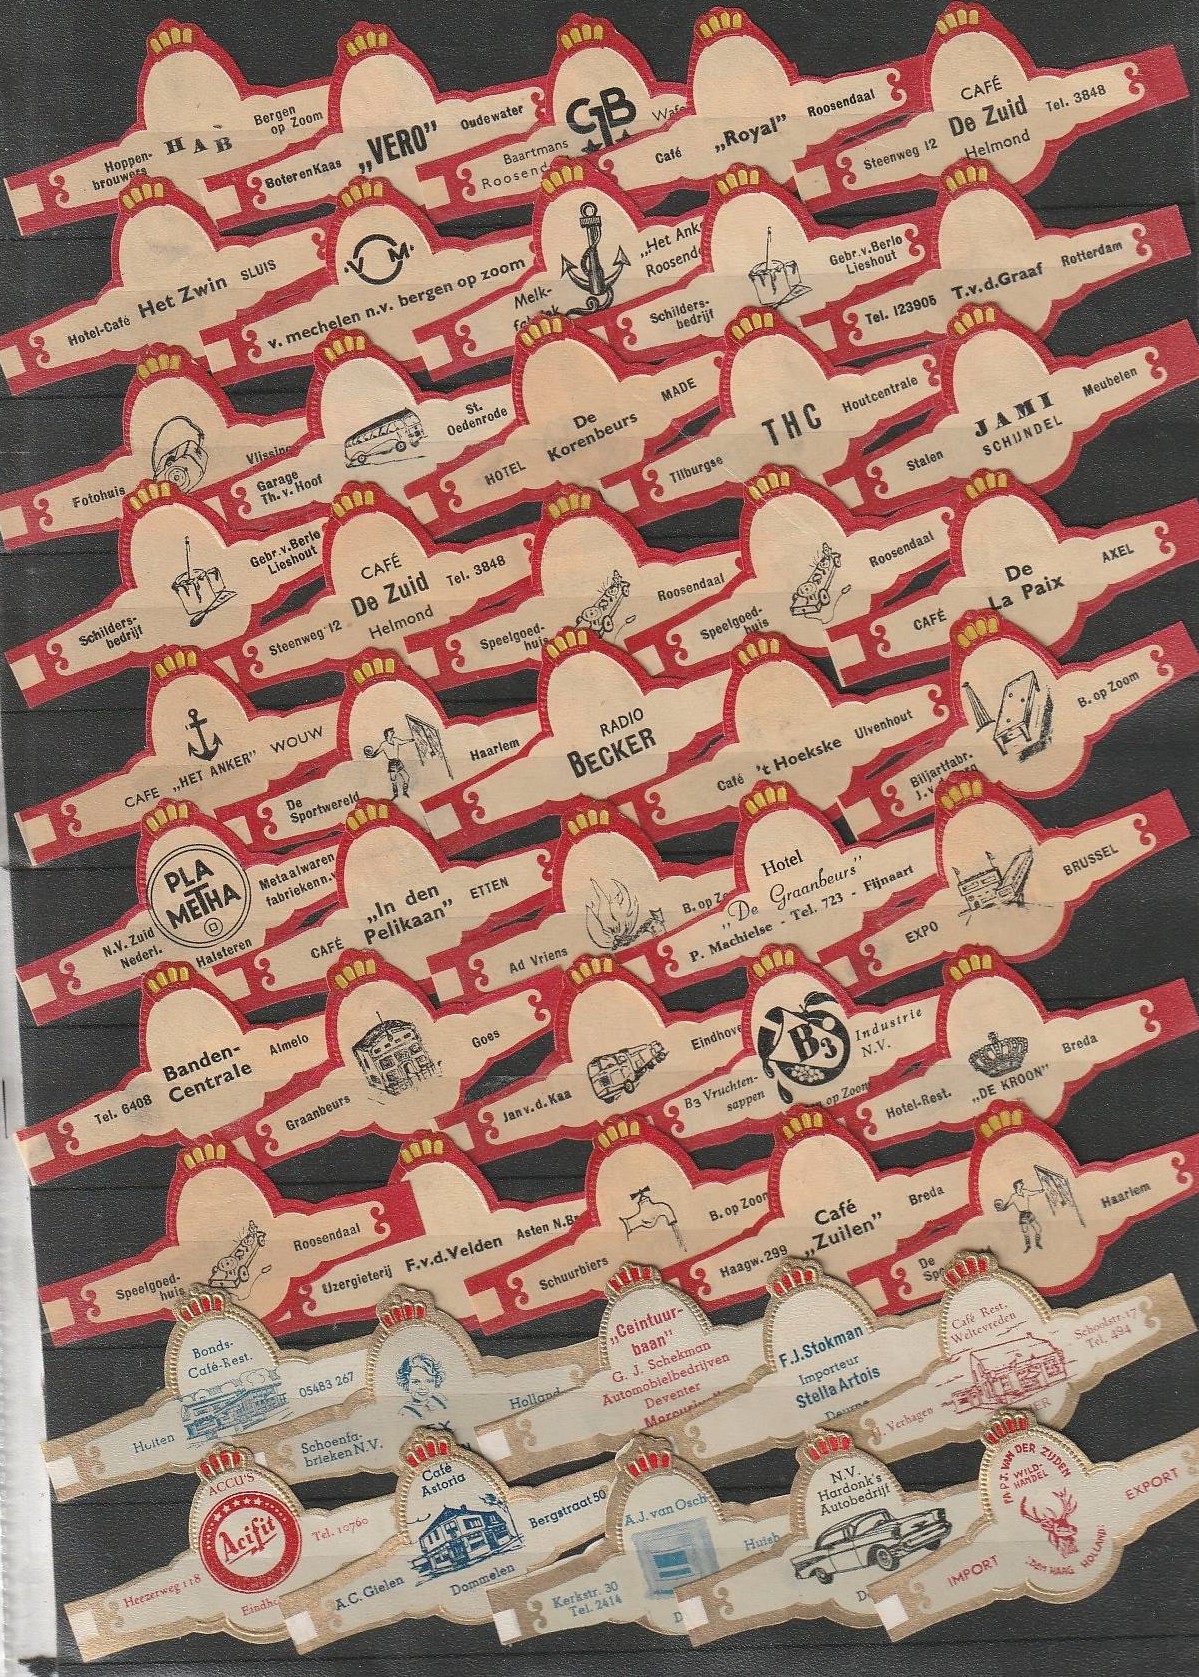 Hoppen-
brouwers
HAB
Bergen
op Zoom
Boter en Kaas
„VERO”
Oudewater
Baartmans
Roosend
CJB
Café
„Royal”
Roosendaal
Steenweg 12
CAFÉ
De Zuid
Helmond
Tel. 3848
Hotel-Café
Het Zwin
SLUIS
V M
v. mechelen n.v. bergen op zoom
Melk-
„Het Ank
Roosend
Schilders-
bedrijf
Gebr. v. Berlo
Lieshout
Tel. 123905
T. v. d. Graaf
Rotterdam
Fotohuis
Vlissing
Garage
Th. v. Hoof
St.
Oedenrode
HOTEL
De
Korenbeurs
MADE
Tilburgse
THC
Houtcentrale
Stalen
JAMI
SCHIJNDEL
Meubelen
Schilders-
bedrijf
Gebr. v. Berlo
Lieshout
Steenweg 12
CAFÉ
De Zuid
Helmond
Tel. 3848
Speelgoed-
huis
Roosendaal
Speelgoed-
huis
Roosendaal
CAFÉ
De
La Paix
AXEL
CAFE „HET ANKER” WOUW
De
Sportwereld
Haarlem
RADIO
BECKER
Café 't Hoekske
Ulvenhout
Biljartfabr.
B. op Zoom
N.V. Zuid
Nederl.
PLA
METHA
Metaalwaren
fabrieken n.v
Halsteren
CAFÉ
„In den
Pelikaan”
ETTEN
Ad Vriens
B. op Zo
Hotel
„De Graanbeurs”
P. Machielse - Tel. 723 - Fijnaart
EXPO
BRUSSEL
Tel. 6408
Banden-
Centrale
Almelo
Graanbeurs
Goes
Jan v. d. Kaa
Eindhove
B3 Vruchten-
sappen
B3
Industrie
N.V.
op Zoom
Hotel-Rest.
„DE KROON”
Breda
Speelgoed-
huis
Roosendaal
IJzergieterij
F. v. d. Velden
Asten N.Br
Schuurbiers
B. op Zoom
Haagw. 299
Café
„Zuilen”
Breda
De
Spo
Haarlem
Bonds-
Café-Rest.
Hulten
05483 267
Schoenfa-
brieken N.V.
Holland
„Ceintuur-
baan”
G. J. Schekman
Automobielbedrijven
Deventer
Mercurius
F. J. Stokman
Importeur
Stella Artois
Deurne
Café Rest.
Weltevreden
J. Verhagen
Schoolstr. 17
Tel. 494
Heezerweg 118
ACCU'S
Acifit
Tel. 10760
Eindho
A.C. Gielen
Café
Astoria
Dommelen
Bergstraat 50
Kerkstr. 30
Tel. 2414
A.J. van Osch
Huish
D
N.V.
Hardonk's
Autobedrijf
D
IMPORT
FA P.J. VAN DER ZIJDEN
WILD-
HANDEL
DEN HAAG HOLLAND
EXPORT